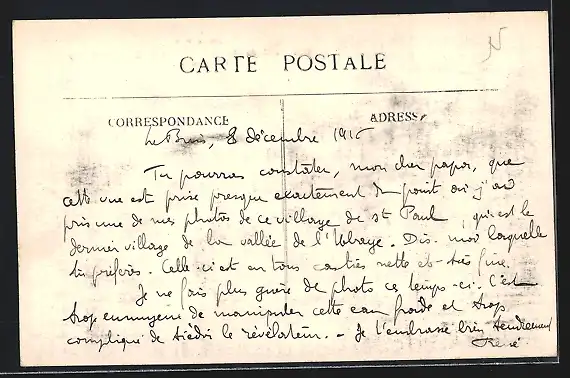 CARTE POSTALE
CORRESPONDANCE
ADRESSE
8 décembre 191
Tu pourras constater, mon cher papa, que
cette vue est prise presque exactement du point où j'ai
pris une de mes photos de ce village de St Paul, qui est le
dernier village de la vallée de l'Ubaye. Dis-moi laquelle
tu préfères. Celle-ci est en tous cas très nette et très fine.
Je ne fais plus guère de photo ce temps-ci. C'est
trop ennuyeux de manipuler cette eau froide et trop
compliqué de tiédir le révélateur. - Je t'embrasse bien tendrement
René